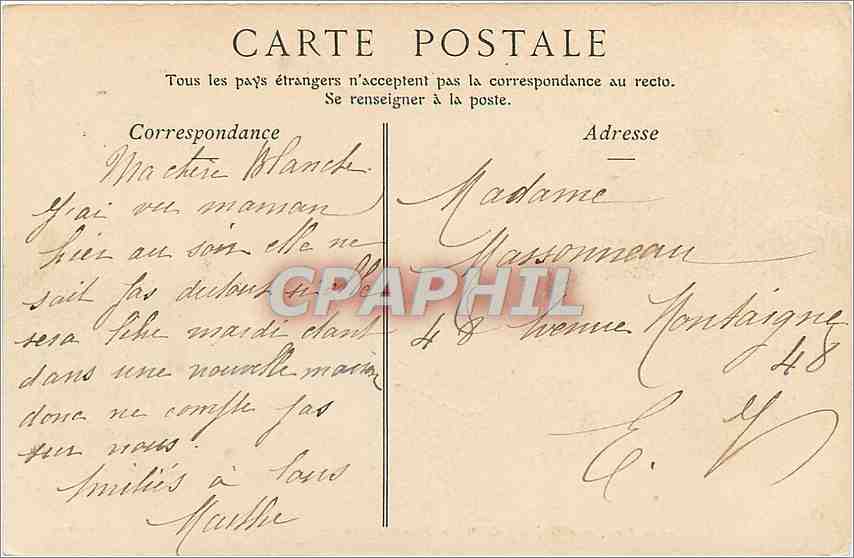 CARTE POSTALE
Tous les pays étrangers n'acceptent pas la correspondance au recto.
Se renseigner à la poste.
Correspondance
Ma chère Blanche
J'ai vu maman
hier au soir elle ne
sait pas du tout si elle
sera libre mardi étant
dans une nouvelle maison
donc ne compte pas
sur nous.
Amitiés à tous
Marthe
Adresse
Madame
Massonneau
48 Avenue Montaigne
48
E. V
CPAPHIL